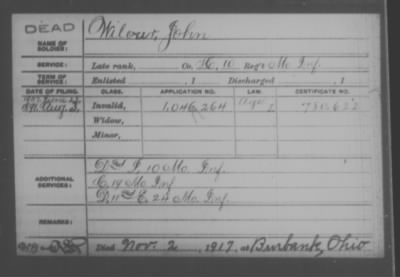 DEAD
NAME OF SOLDIER: Wilour, John
SERVICE: Late rank, Co. H, 10 Reg't Mo Inf
TERM OF SERVICE: Enlisted , 1 Discharged , 1
DATE OF FILING. CLASS. APPLICATION NO. LAW. CERTIFICATE NO.
1891 Aug 3, Invalid, 1,046,264
Widow,
Minor,
ADDITIONAL SERVICES:
F, 10 Mo. Inf
C, 19 Mo Inf
E, 24 Mo. Inf.
REMARKS:
Died Nov. 2, 1917, at Burbank, Ohio